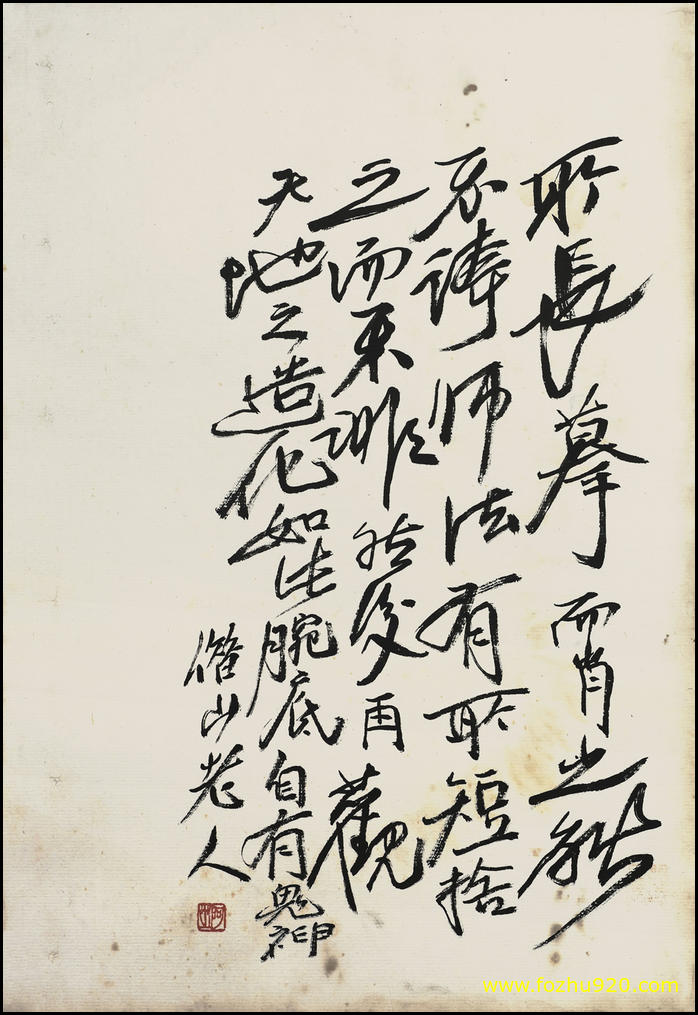 所長摹而肖之能
不誇師法有所短捨
之而不誹然後再觀
天地之造化如此腕底自有鬼神
借山老人
阿芝
www.fazhu920.com